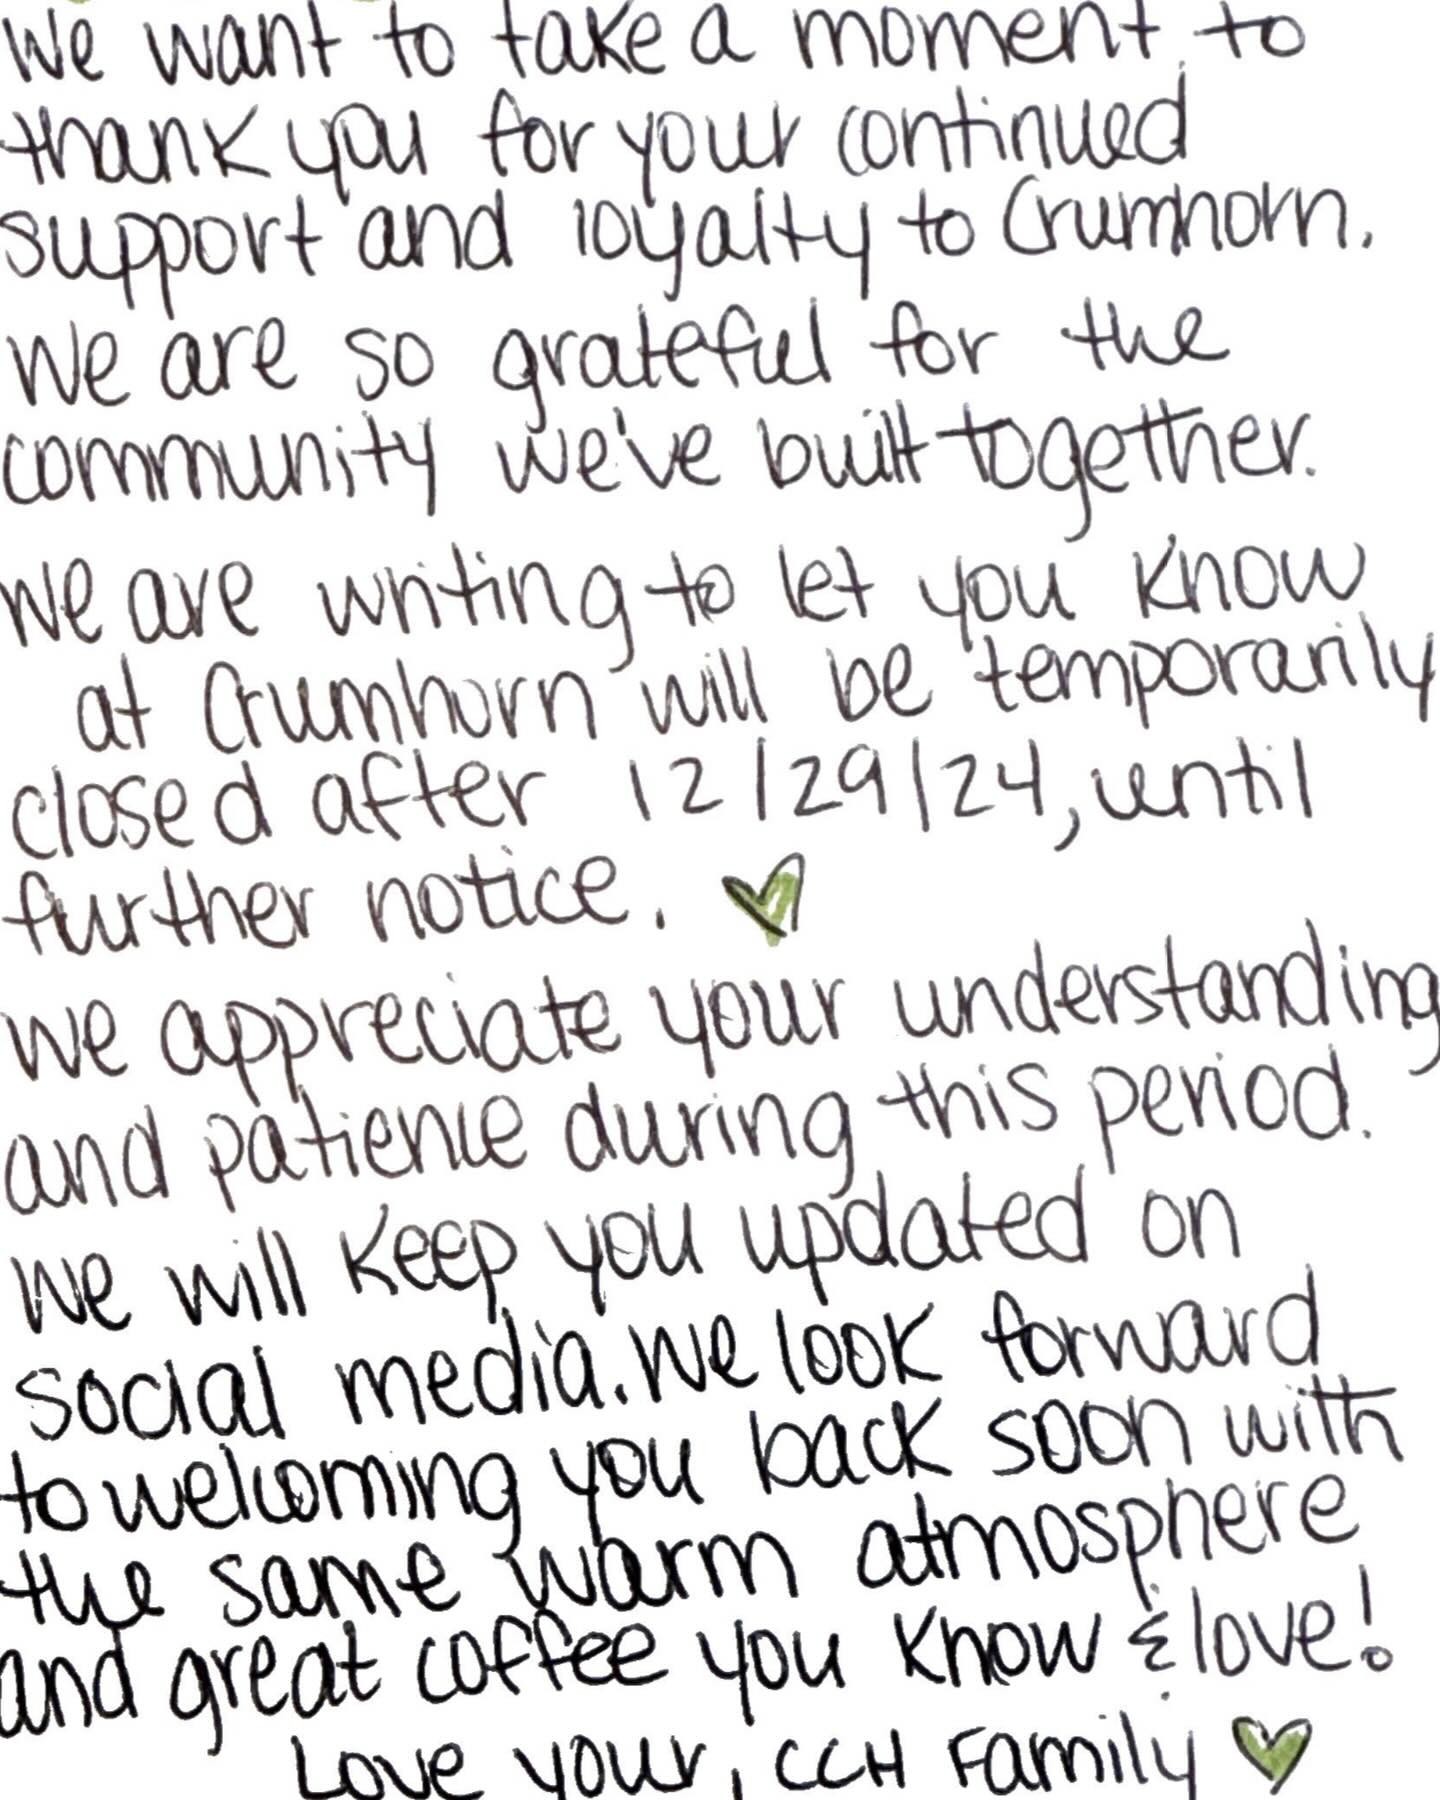 We want to take a moment to
thank you for your continued
support and loyalty to Crumhorn.
We are so grateful for the
community we've built together.
We are writing to let you know
at Crumhorn will be temporarily
closed after 12/29/24, until
further notice.
We appreciate your understanding
and patience during this period.
We will keep you updated on
social media. We look forward
to welcoming you back soon with
the same warm atmosphere
and great coffee you know & love!
Love your, CCH Family